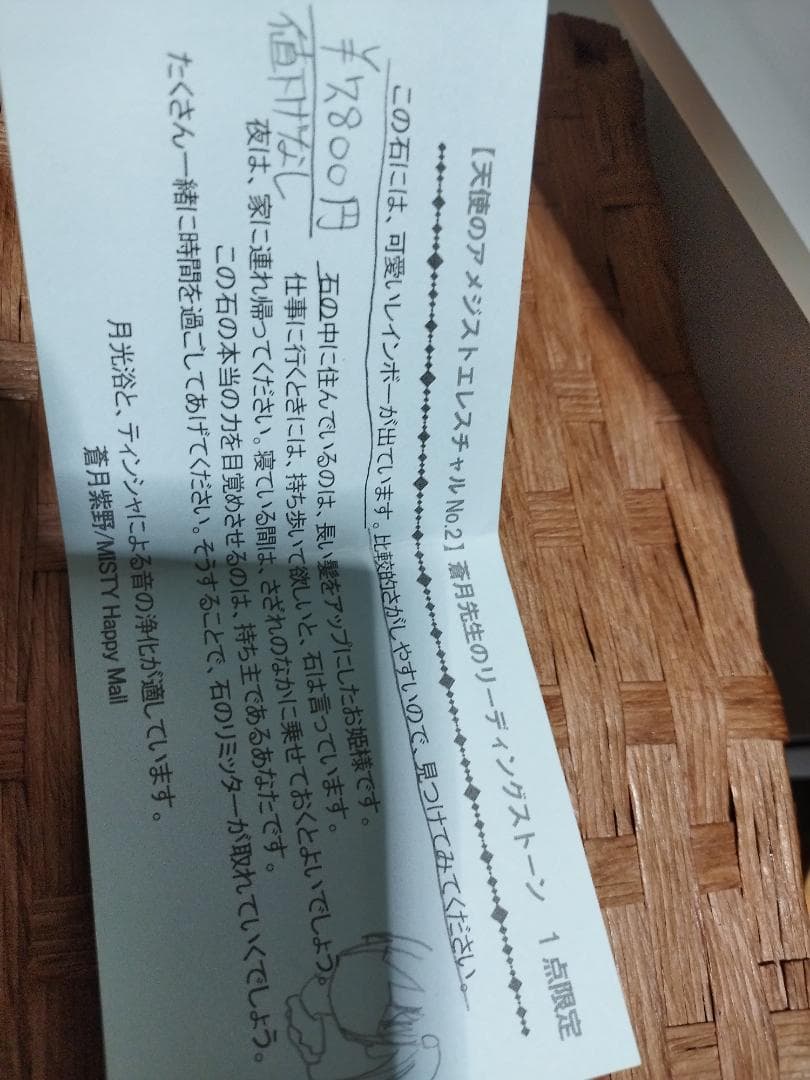 【天使のアメジストエレスチャルNo.2】蒼月先生のリーディングストーン　1点限定
この石には、可愛いレインボーが出ています。比較的さがしやすいので、見つけてみてください。
石の中に住んでいるのは、長い髪をアップにしたお姫様です。
仕事に行くときには、持ち歩いて欲しいと、石は言っています。
夜は、家に連れ帰ってください。寝ている間は、さざれのなかに乗せておくとよいでしょう。
この石の本当の力を目覚めさせるのは、持ち主であるあなたです。
たくさん一緒に時間を過ごしてあげてください。そうすることで、石のリミッターが取れていくでしょう。
月光浴と、ティンシャによる音の浄化が適しています。
蒼月紫野/MISTY Happy Mall
¥7,800円
値下げなし